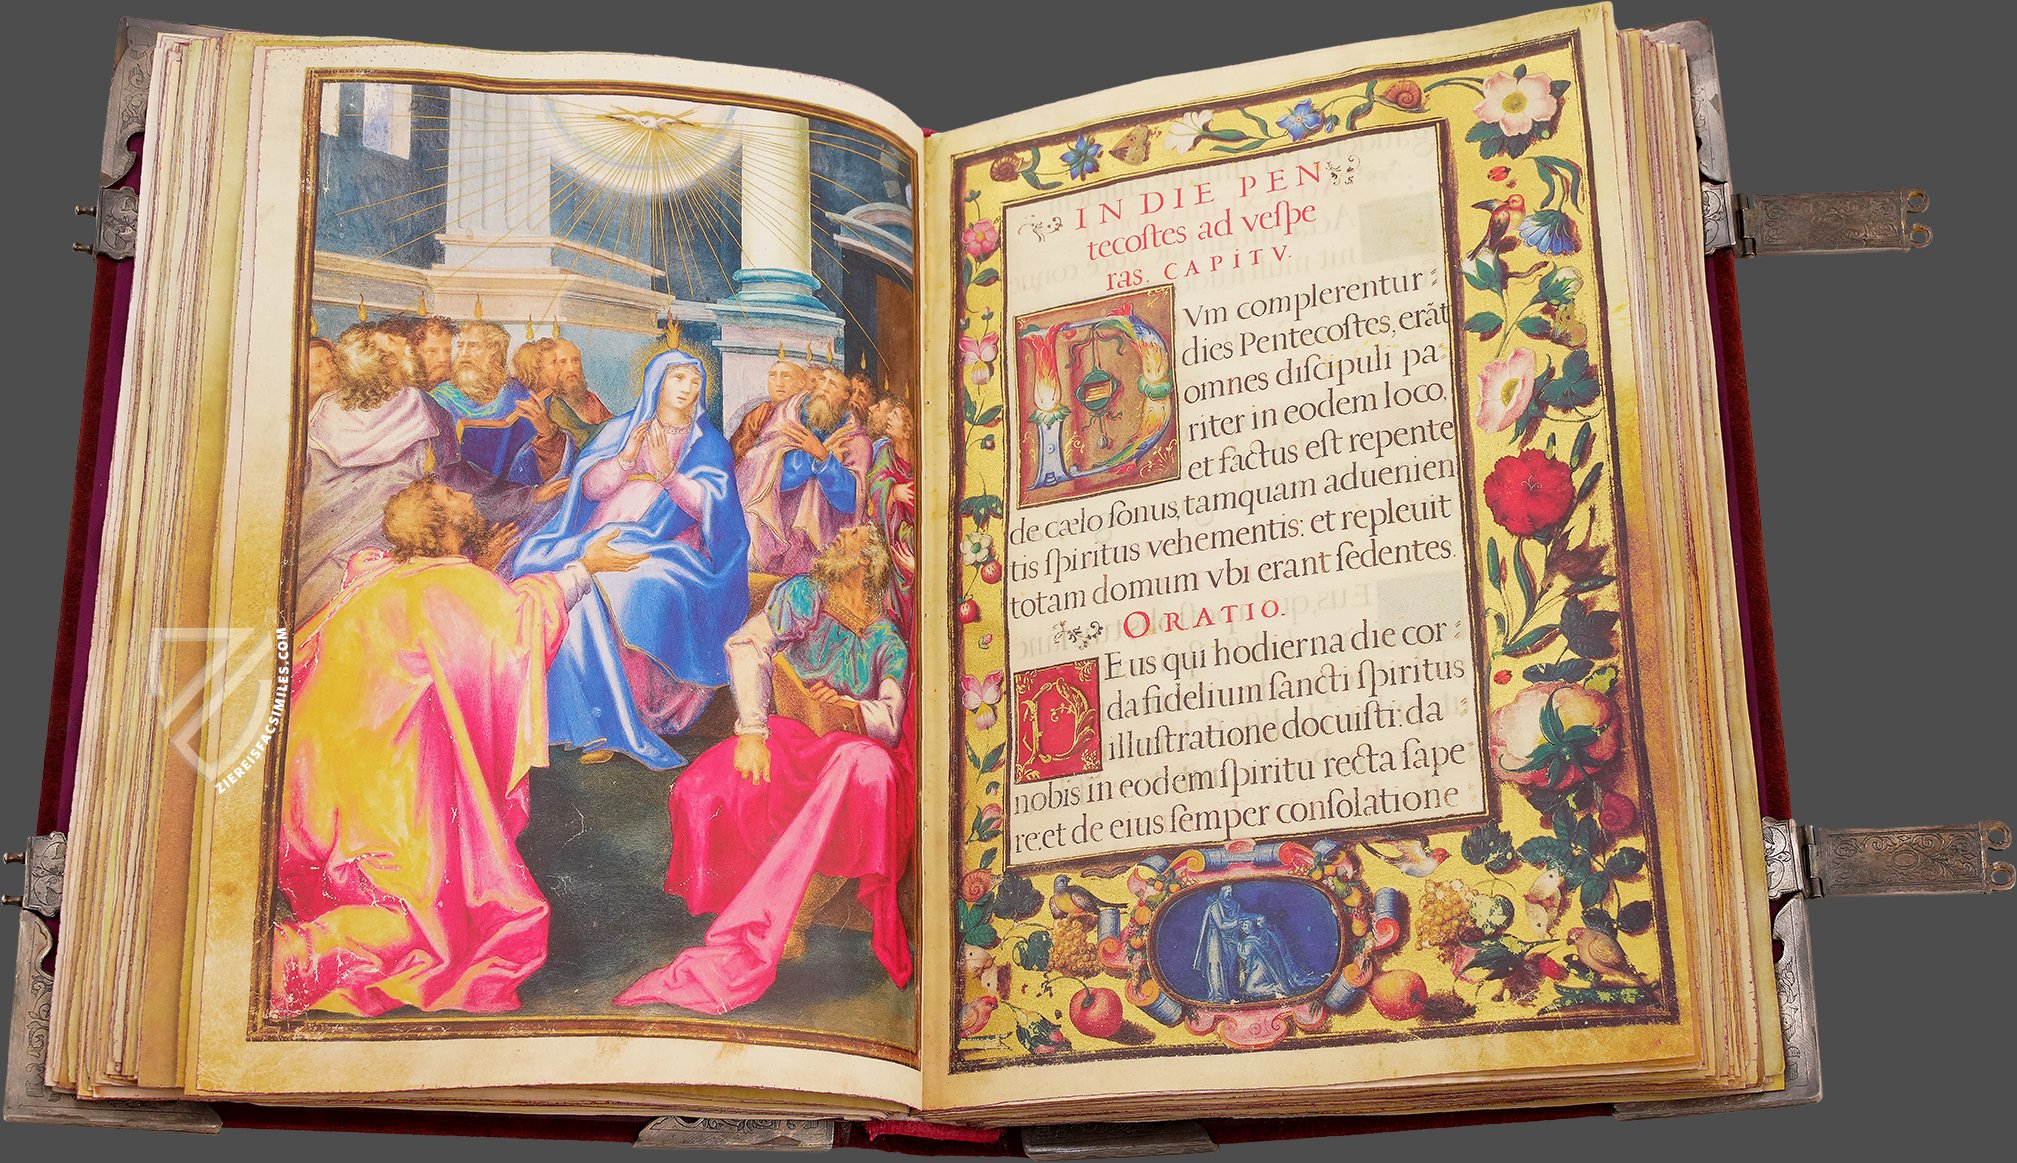 IN DIE PEN
tecoſtes ad veſpe
ras. CAPITV.
DVm complerentur:
dies Pentecoſtes, erãt
omnes diſcipuli pa:
riter in eodem loco,
et factus eſt repente
de cælo ſonus, tamquam aduenien
tis ſpiritus vehementis: et repleuit
totam domum vbi erant ſedentes.
ORATIO.
DEus qui hodierna die cor:
da fidelium ſancti ſpiritus
illuſtratione docuiſti: da
nobis in eodem ſpiritu recta ſape
re: et de eius ſemper conſolatione
ZIEREISFACSIMILES.COM